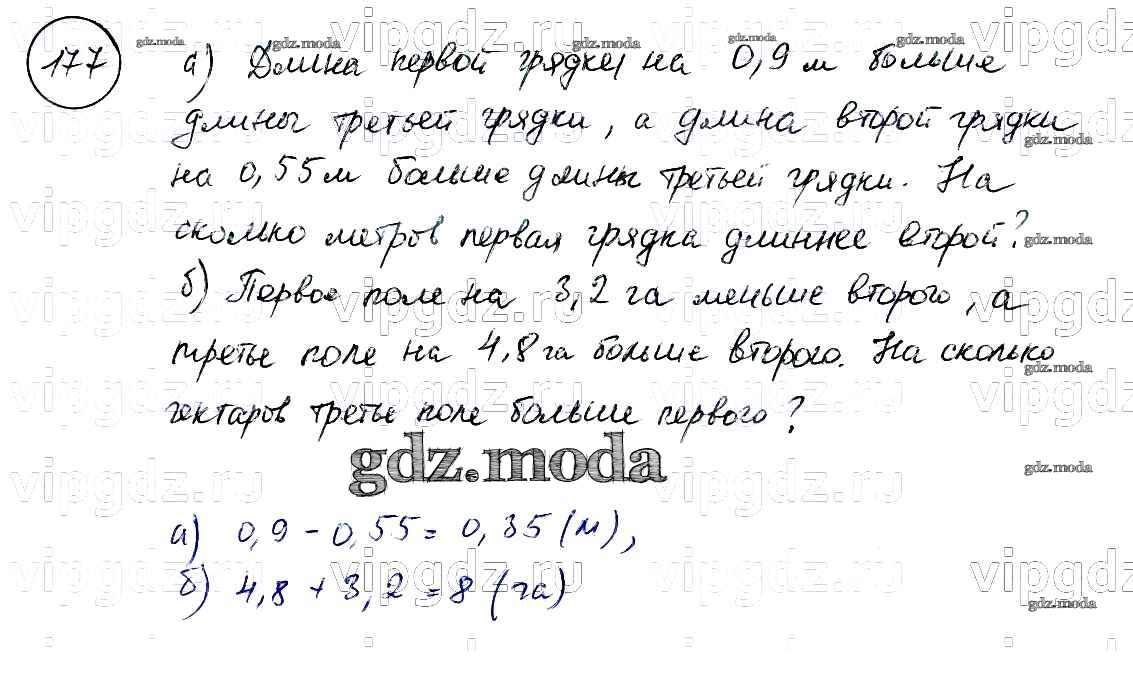 177 а) Длина первой грядки на 0,9 м больше
длины третьей грядки, а длина второй грядки
на 0,55 м больше длины третьей грядки. На
сколько метров первая грядка длиннее второй?
б) Первое поле на 3,2 га меньше второго, а
третье поле на 4,8 га больше второго. На сколько
гектаров третье поле больше первого?
gdz.moda
а) 0,9 - 0,55 = 0,35 (м),
б) 4,8 + 3,2 = 8 (га)
vipgdz.ru